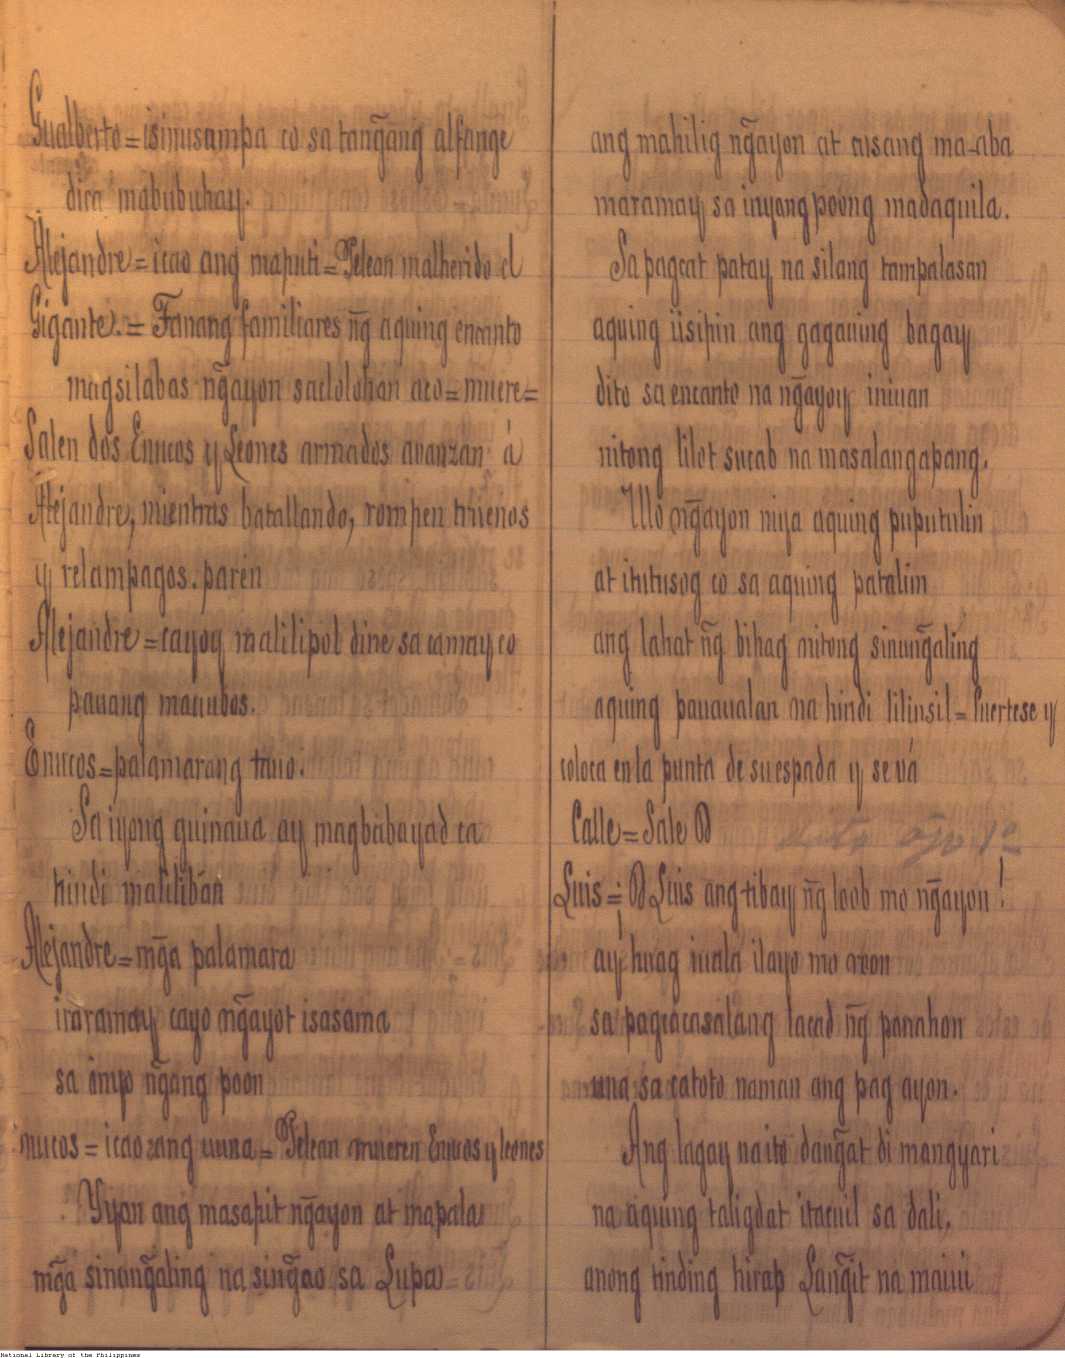 Gualberto = isinusumpa co sa tangang alfange
dica mabubuhay.
Alejandre = icao ang maputi = Pelean malherido el
Gigante. = Fanang familiares ñg aquing encanto
magsilabas ñgayon saclolohan aco = muere =
Salen dos Enucos y Leones armados avanzan á
Alejandre, mientras batallando, rompen truenos
y relampagos. paren
Alejandre = cayoy malilipol dine sa camay co
pauang maiubos.
Enucos = palamarang tauo.
Sa iyong guinaua ay magbabayad ca
hindi maliliban
Alejandre = mg̃a palamara
iraramay cayo ñgayot isasama
sa ompo ñgang poon
Enucos = icao ang uuna = Pelean mueren Enucos y leones
Yiyan ang masapit ñgayon at mapala
mg̃a sinung̃aling na sing̃ao sa Lupa
ang mahilig ñgayon at aisang ma-aba
maramay sa inyong poong madaquila.
Sa pagcat patay na silang tampalasan
aquing iisipin ang gagauing bagay
dito sa encanto na ñgayoy iniuan
nitong lilot sucab na masalangapang.
Ulo ñgayon niya aquing puputulin
at itutusog co sa aquing patalim
ang lahat ñg bihag nitong sinung̃aling
aquing pauaualan na hindi lilinsil = Puertese y
coloca en la punta de su espada y se vá
Calle = Sale D
Luis = ¡ D Luis ang tibay ñg loob mo ñgayon !
ay huag iuala ilayo mo roon
sa pagcacasalang lacad ñg panahon
una sa catoto naman ang pag ayon.
Ang lagay na ito dang̃at di mangyari
na aquing taligdat itacuil sa dali,
anong tinding hirap Lang̃it na maiui
National Library of the Philippines